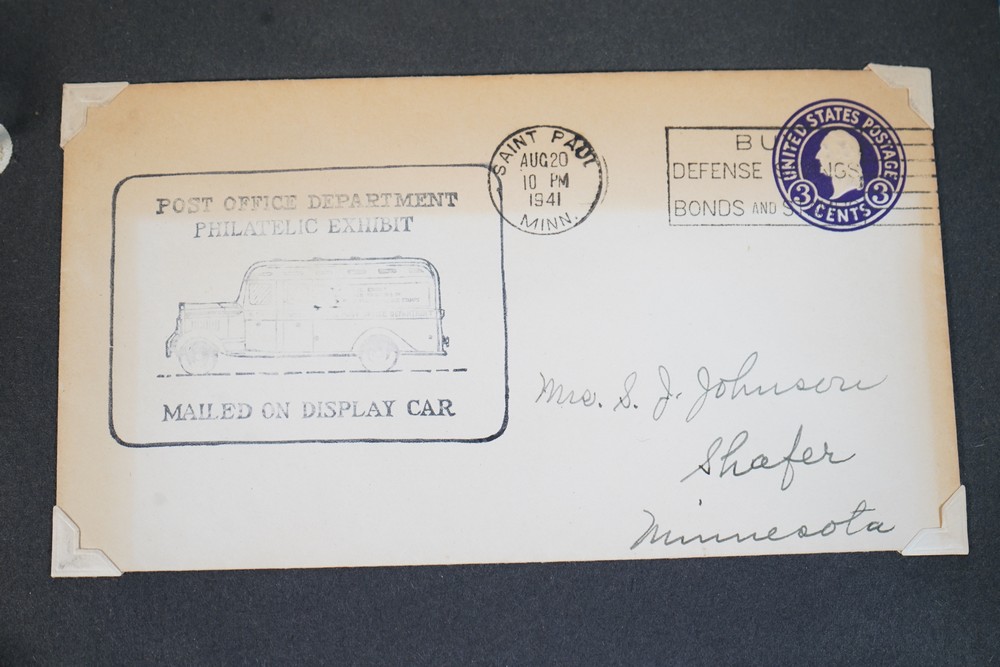 POST OFFICE DEPARTMENT
PHILATELIC EXHIBIT
MAILED ON DISPLAY CAR
SAINT PAUL
AUG 20
10 PM
1941
MINN.
BU
DEFENSE NGS
BONDS AND S
UNITED STATES POSTAGE
3 CENTS 3
Mrs. S. J. Johnson
Shafer
Minnesota